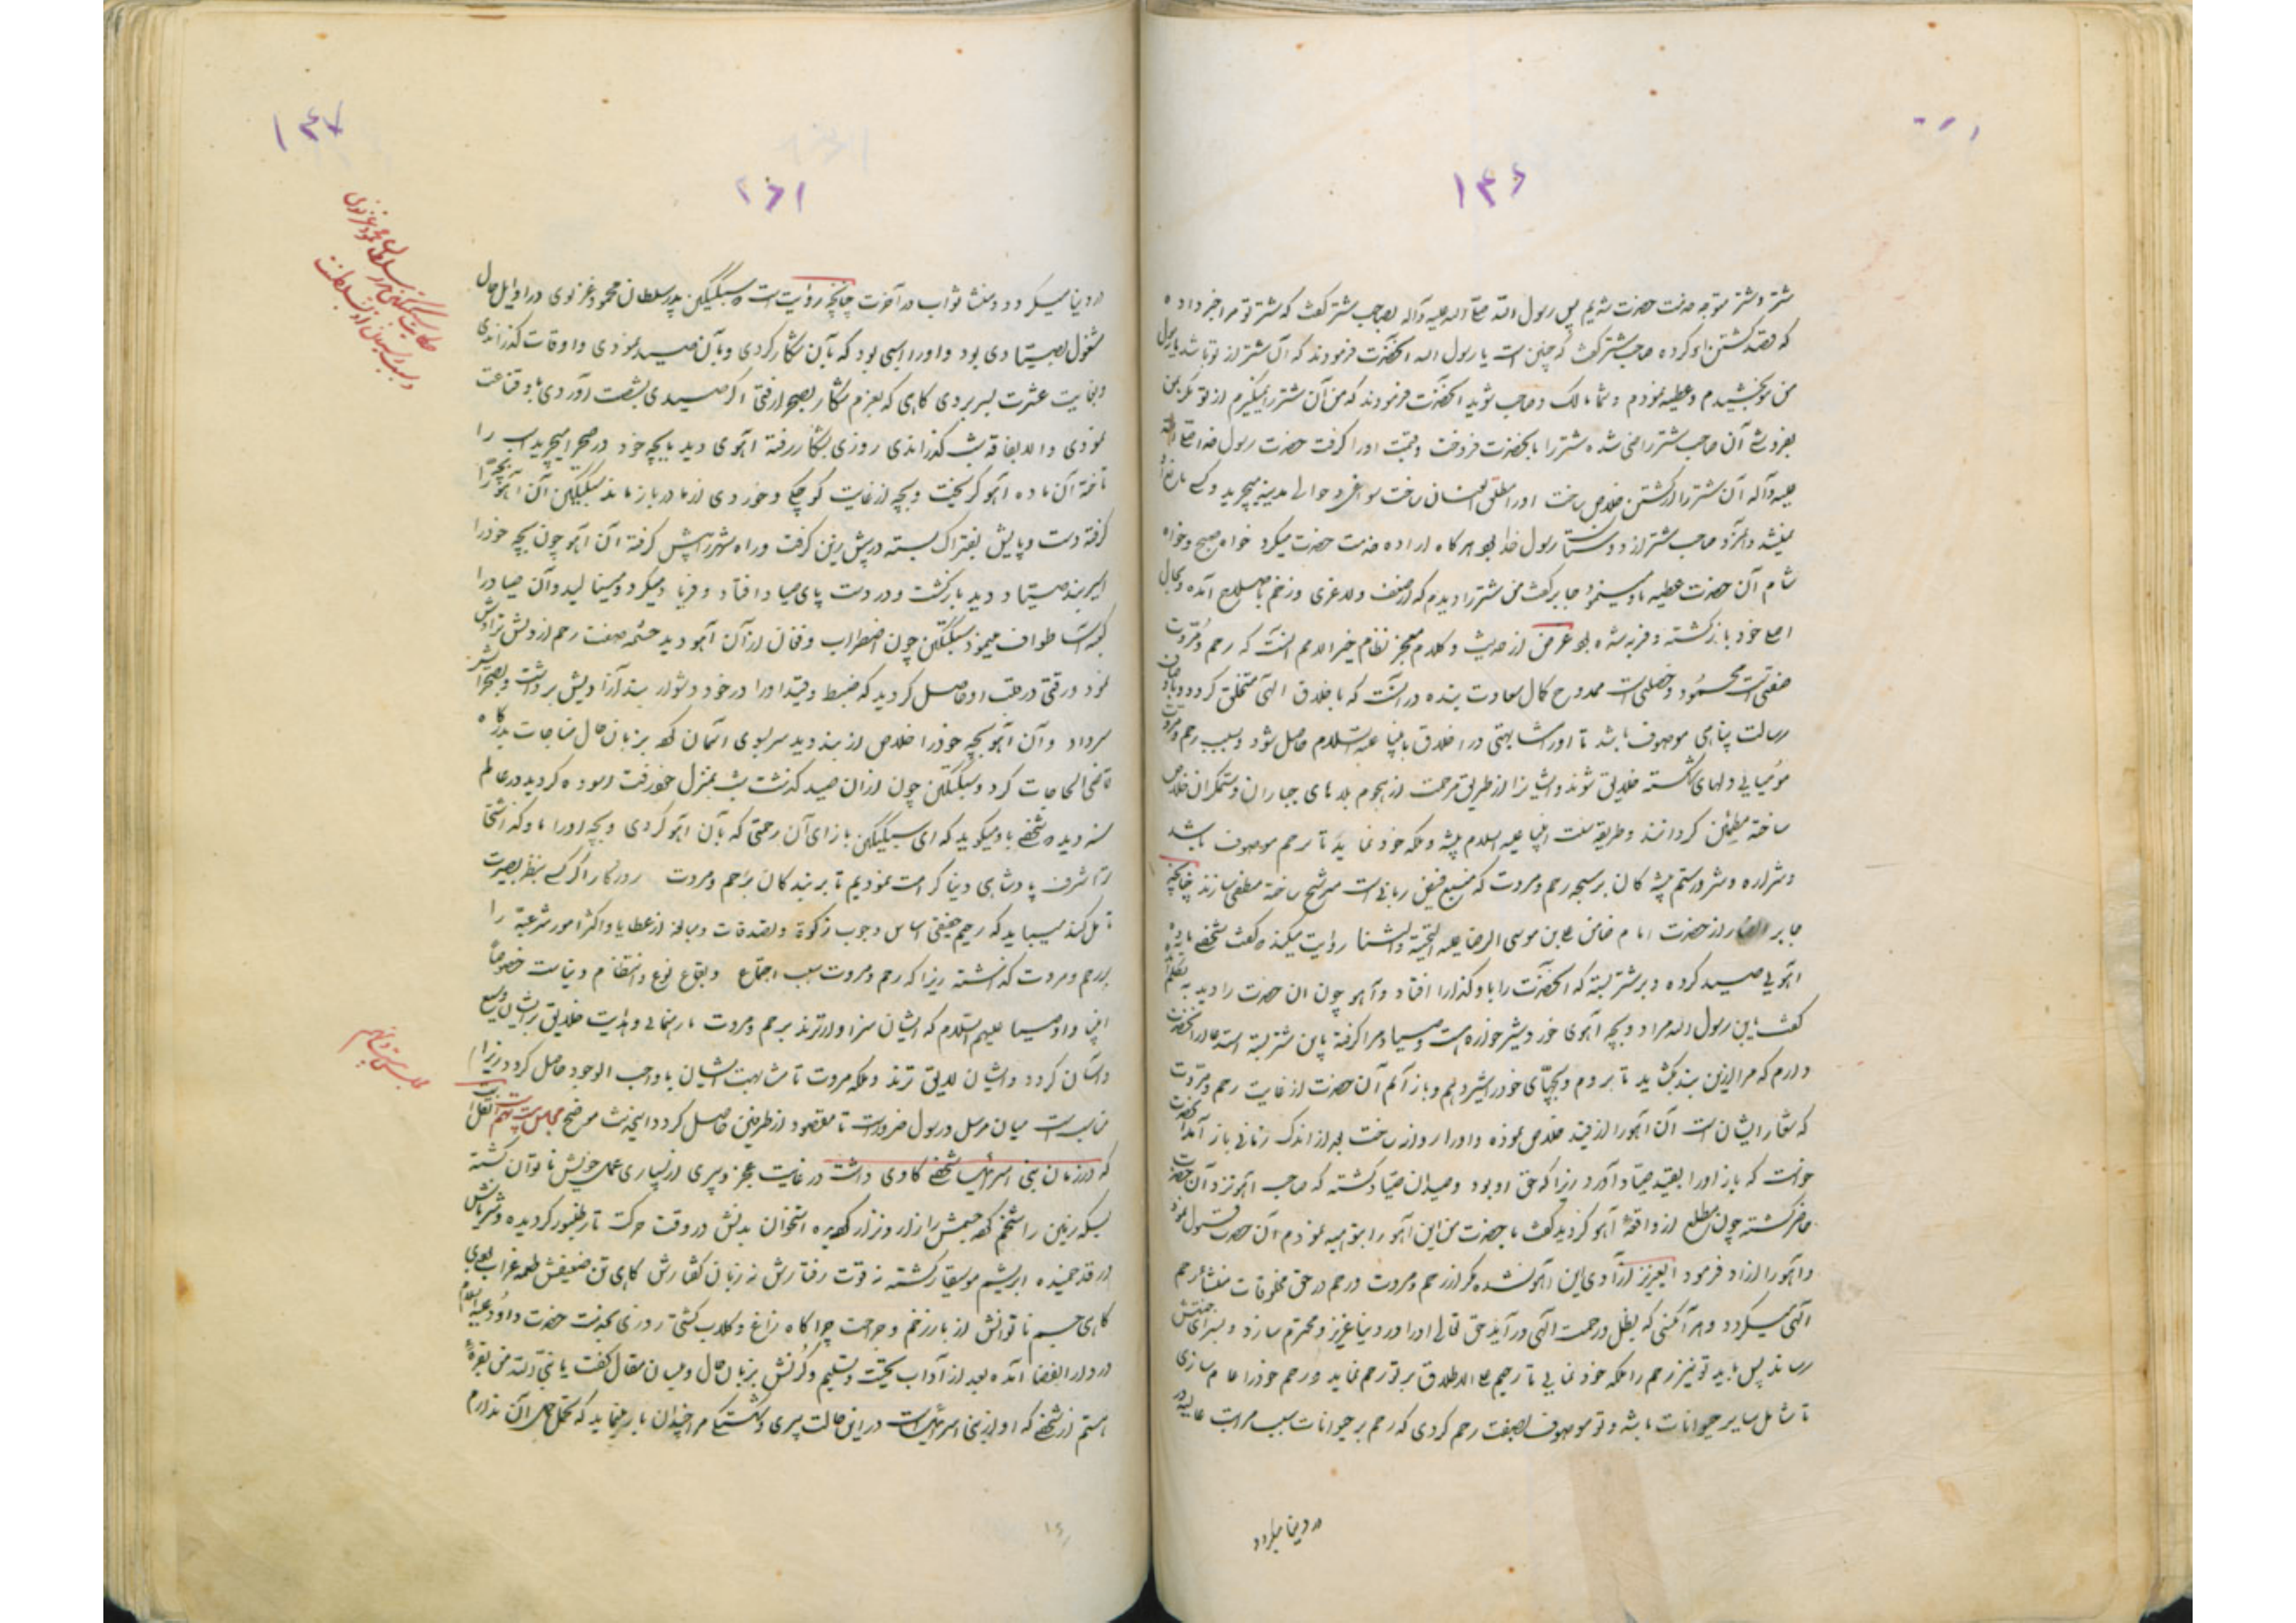 ۱۴۶
شتر و شتر متوجه خدمت حضرت شدیم پس رسول الله صلی الله علیه وآله بصاحب شتر گفت که شتر تو مرا خبر داده
که قصد کشتن او کرده صاحب شتر گفت که چنین است یا رسول الله آنحضرت فرمودند که آن شتر از تو باشد یا رسول
من بتو بخشیدم و عطیه نمودم و شما مالک و صاحب شوید آنحضرت فرمودند که من آن شتر را نمیگیرم از تو مگر بمن
بفروشی آن صاحب شتر راضی شده شتر را بآنحضرت فروخت و قیمت او را گرفت حضرت رسول خدا صلی الله
علیه وآله آن شتر را از کشتن خلاص ساخت او را مطلق العنان ساخت در حوالی مدینه میچرید و کسی مانع او
نمیشد و صاحب شتر از دوستان رسول خدا بود هرگاه اراده خدمت حضرت میکرد خواه صبح و خواه
شام آن حضرت عطیه باو مینمود جابر گفت من شتر را دیدم که از ضعف و لاغری و زخم باصلاح آمده و بحال
اصلی خود بازگشته و فربه شده بود غرض از حدیث و کلام معجز نظام خیر الامم آنست که رحم و مروت
صفتی است محمود و خصلتی است ممدوح کمال سعادت بنده در آنست که باخلاق الهی متخلق گردد و باوصاف
رسالت پناهی موصوف باشد تا او را مشابهتی در اخلاق بانبیا علیه السلام حاصل شود و بسبب رحم و مروت
مومیایی دلهای شکسته خلایق شوند و ایشان را از طریق مرحمت از هجوم بلاهای جباران و ستمگران خلاص
ساخته مطمئن گردانند و طریقه سنت انبیا علیه السلام پیشه و ملکه خود نماید تا برحم موصوف باشد
و شراره و شرر ستم پیشه کان برسجه رحم و مروت که منبع فیض ربانی است مترشح ساخته منطفی سازند چنانچه
جابر انصار از حضرت امام ضامن علی بن موسی الرضا علیه التحیة والثنا روایت میکند که گفت شخصی ماده
آهویی صید کرده و بر شتر بسته که آنحضرت را باو گذار افتاد و آهو چون آن حضرت را دید به تظلم
گفت یا بن رسول الله مرا دو بچه آهوی خورد شیرخواره است و صیاد مرا گرفته باین شتر بسته استدعا از آنحضرت
دارم که مرا ازین بند بگشاید تا بروم و بچهای خود را شیر دهم و باز آیم آن حضرت از غایت رحم و مروت
که شعار ایشان است آن آهو را از قید خلاص نموده و او را روانه ساخت بعد از اندک زمانی باز آمد آنحضرت
خواست که باز او را بقید صیاد آورد زیرا که حق او بود و صیدان صیاد گشته که صاحب آهو نزد آن حضرت
حاضر گشته چون مطلع از واقعهٔ آهو گردید گفت یا حضرت من این آهو را بتو هبه نمودم آن حضرت قبول نمود
و آهو را آزاد فرمود ای عزیز آزادی این آهو نشده مگر از رحم و مروت و رحم در حق مخلوقات منشاء رحم
الهی میگردد و هر آنکسی که بظل رحمت الهی درآید حق تعالی او را در دنیا عزیز و محترم سازد و بسرای جنتش
رساند پس باید تو نیز رحم را ملکه خود نمایی تا رحیم علی الاطلاق بر تو رحم نماید و رحم خود را عام سازی
تا شامل سایر حیوانات باشد و تو موصوف بصفت رحم گردی که رحم بر حیوانات سبب مراتب عالیه
در دنیا میگردد
۱۴۷
در دنیا میگردد و منشاء ثواب در آخرت چنانچه روایت است که سبکتکین پدر سلطان محمود غزنوی در اوایل حال
مشغول بصیادی بود و او را اسبی بود که بآن شکار کردی و بآن صید نمودی و اوقات گذراندی
و بغایت عشرت بسر بردی گاهی که بعزم شکار بصحرا رفتی اگر صیدی بشصت آوردی باو قناعت
نمودی و الا بفاقه شب گذراندی روزی بشکار رفته آهوی دید با بچه خود در صحرا میچرید اسب را
تاخته آن ماده آهو گریخت و بچه از غایت کوچکی و خوردی از مادر باز ماند سبکتکین آن آهو بچه را
گرفته دست و پایش بفتراک بسته در پیش زین گرفت و راه شهر را پیش گرفته آن آهو چون بچه خود را
اسیر بند صیاد دید بازگشت و در دست پای صیاد افتاد و فریاد میکرد و مینالید و آن صیاد را
طواف مینمود سبکتکین چون اضطراب و فغان از آن آهو دید چشمه صفت رحم از دلش تراوش
نمود و رقتی در قلب او حاصل گردید که ضبط و قید او را در خود دشوار بند از او پیش برداشت و بصحرا سر
سرداد و آن آهو بچه خود را خلاص از بند دید سر بسوی آسمان کرد بزبان حال مناجات بدرگاه
قاضی الحاجات کرد و سبکتکین چون از آن صید گذشت شب بمنزل خود رفت آسوده گردید در عالم
دیده شخصی باو میگوید که ای سبکتکین بازای آن رحمتی که بآن آهو کردی و بچه او را باو گذاشتی
ترا شرف پادشاهی دنیا کرامت نمودیم تا بر بندگان برحم و مروت روزگار اگر کسی بنظر بصیرت
تامل کند میباید که رحیم حقیقی اساس وجوب زکوة و تصدقات و مبالغه از عطایا و اکثر امور شرعیه را
بر رحم و مروت گذاشته زیرا که رحم و مروت سبب اجتماع و بقاع نوع و انتظام دنیا است خصوصاً
انبیا و اوصیا علیهم السلام که ایشان سزاوارترند برحم و مروت تا رهنمایی و هدایت خلایق بر ایشان وسیع
و آسان گردد و ایشان لایق ترند و ملکه مروت تا مشابهت ایشان بواجب الوجود حاصل گردد زیرا
مناسبت میان مرسل و رسول ضرور است تا مقصود از طرفین حاصل گردد مجلس بیست نهم نقل است
که در زمان بنی اسرائیل شخصی گاوی داشت در غایت عجز و پیری از بسیاری عمل خویش ناتوان گشته
بسکه زمین را شخم کرده جسمش زار و نزار گردیده استخوان بدنش در وقت حرکت تار طنبور گردیده
در قد خمیده ابریشم موسیقار گشته نه قوت رفتارش نه زبان گفتارش گاهی تن ضعیفش طعمه غراب
گاهی جسم ناتوانش از بار زخم و جراحت چراگاه زاغ و کلاب گشتی روزی بخدمت حضرت داود علیه السلام
در دار القضا آمده بعد از آداب تحیت و تسلیم و کرنش بزبان حال و لسان مقال گفت یا نبی الله من بقره
هستم از شخصی که او از بنی اسرائیل است در این حالت پیری و شکستگی مرا چندان بار مینماید که تحمل حمل آن ندارم
حکایت سبکتکین پدر سلطان محمود غزنوی
مجلس بیست و نهم